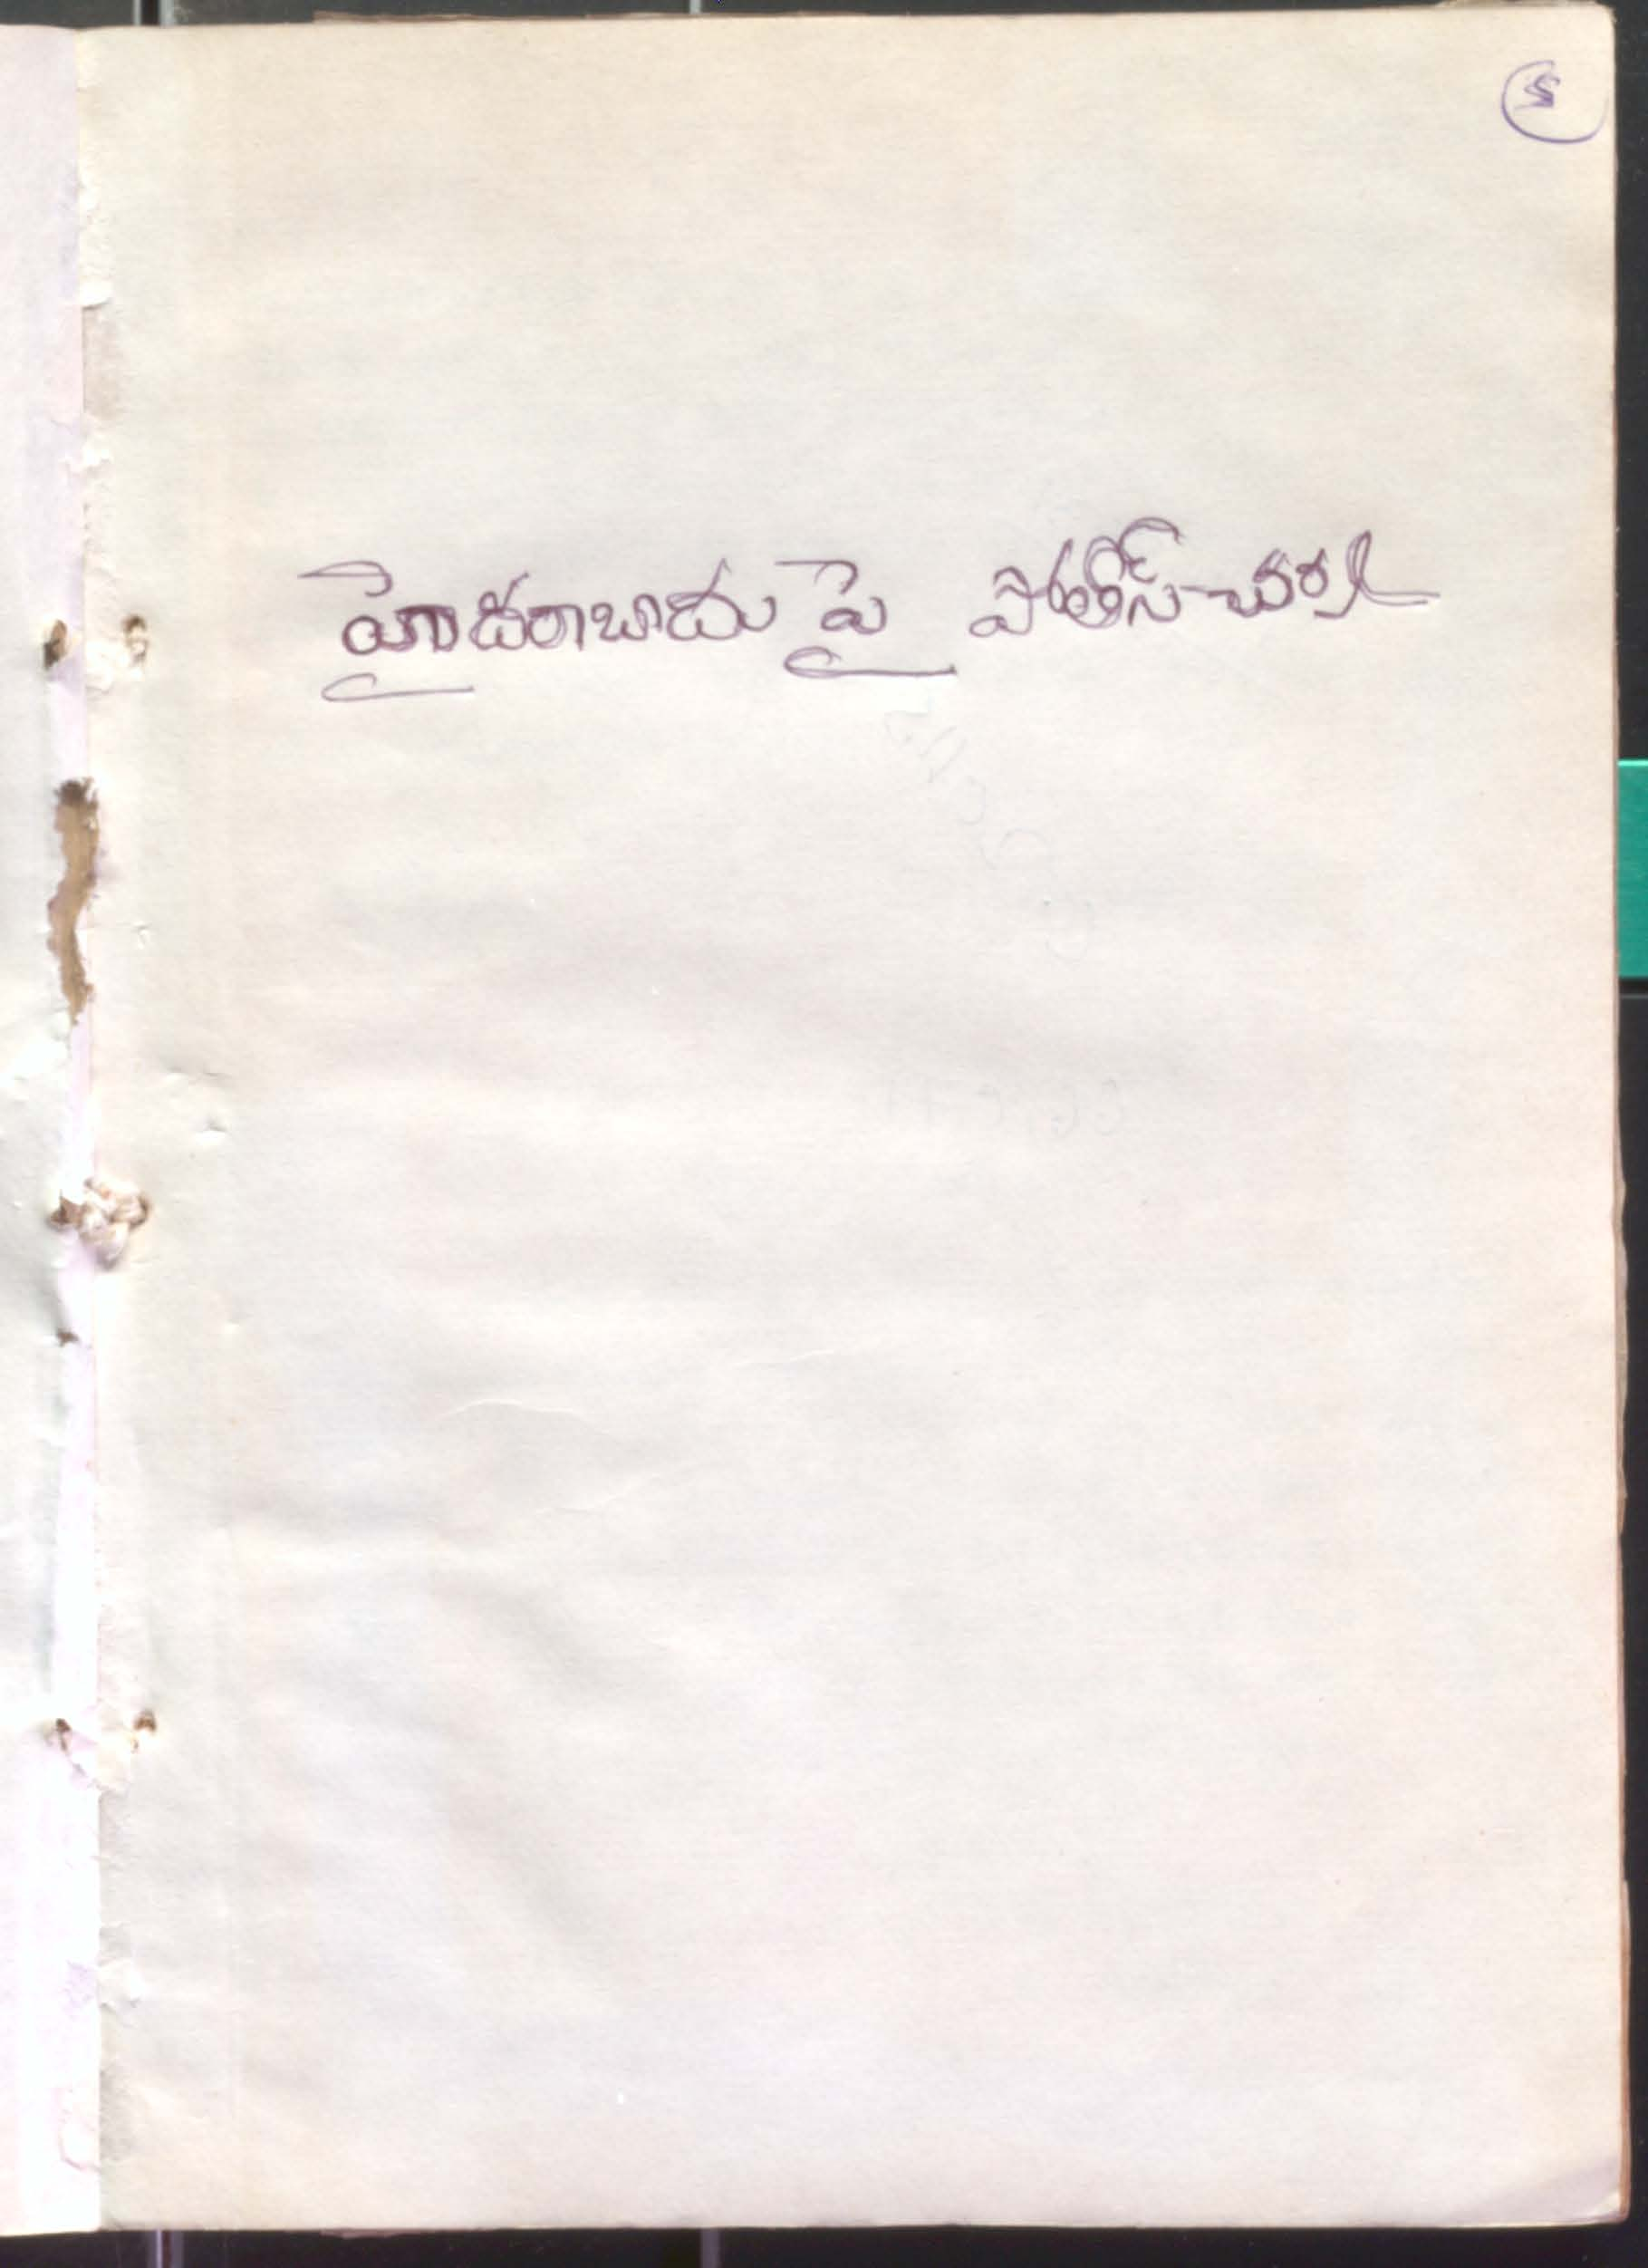 హైదరాబాదు పై పోలీస్ చర్య